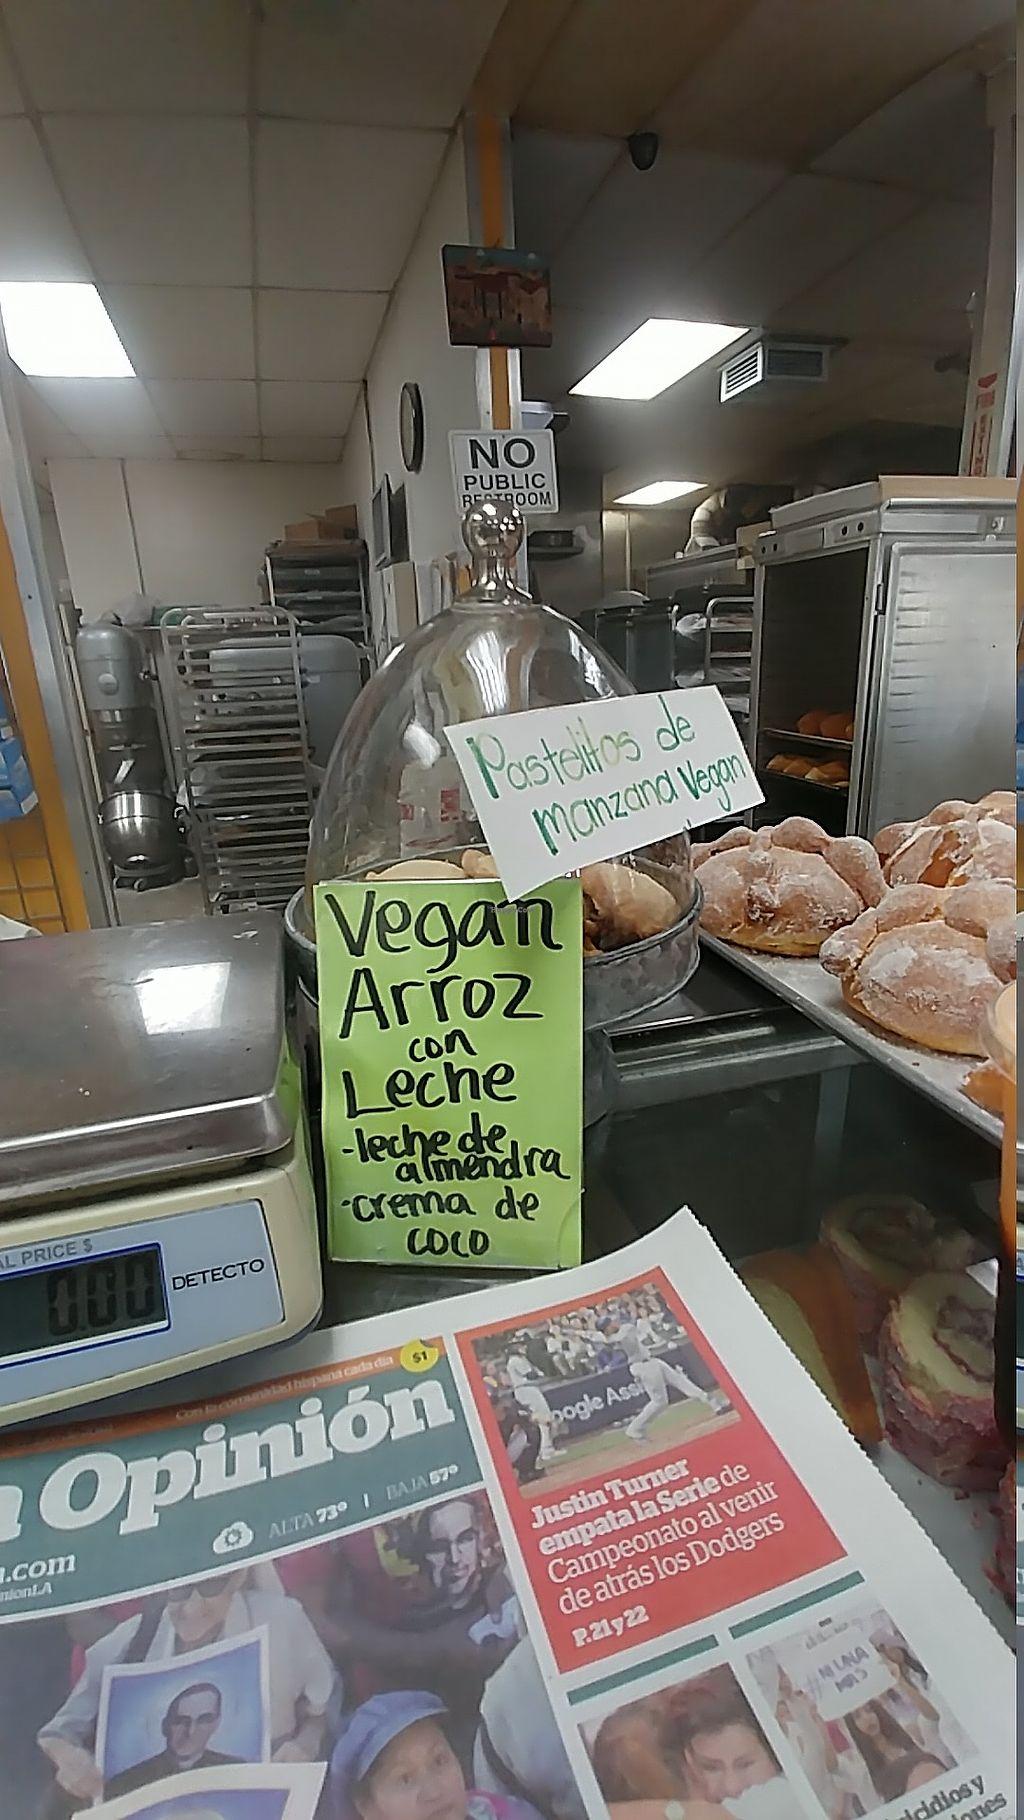 NO
PUBLIC
RESTROOM
Pastelitos de
manzana Vegan
Vegan
Arroz
con
Leche
-leche de
almendra
-crema de
coco
AL PRICE $
0.00
DETECTO
Con la comunidad hispana cada día
$1
a Opinión
ALTA 73° | BAJA 57°
.com
nionLA
oogle Assi
Justin Turner
empata la Serie de
Campeonato al venir
de atrás los Dodgers
P. 21 y 22
#NI UNA
MÁS